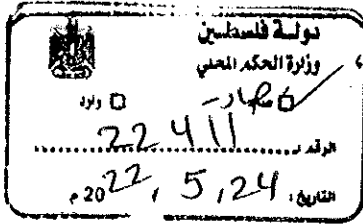 دولة فلسطين
وزارة الحكم المحلي
صادر
وارد
الرقم: 22411
التاريخ: 24, 5, 2022 م